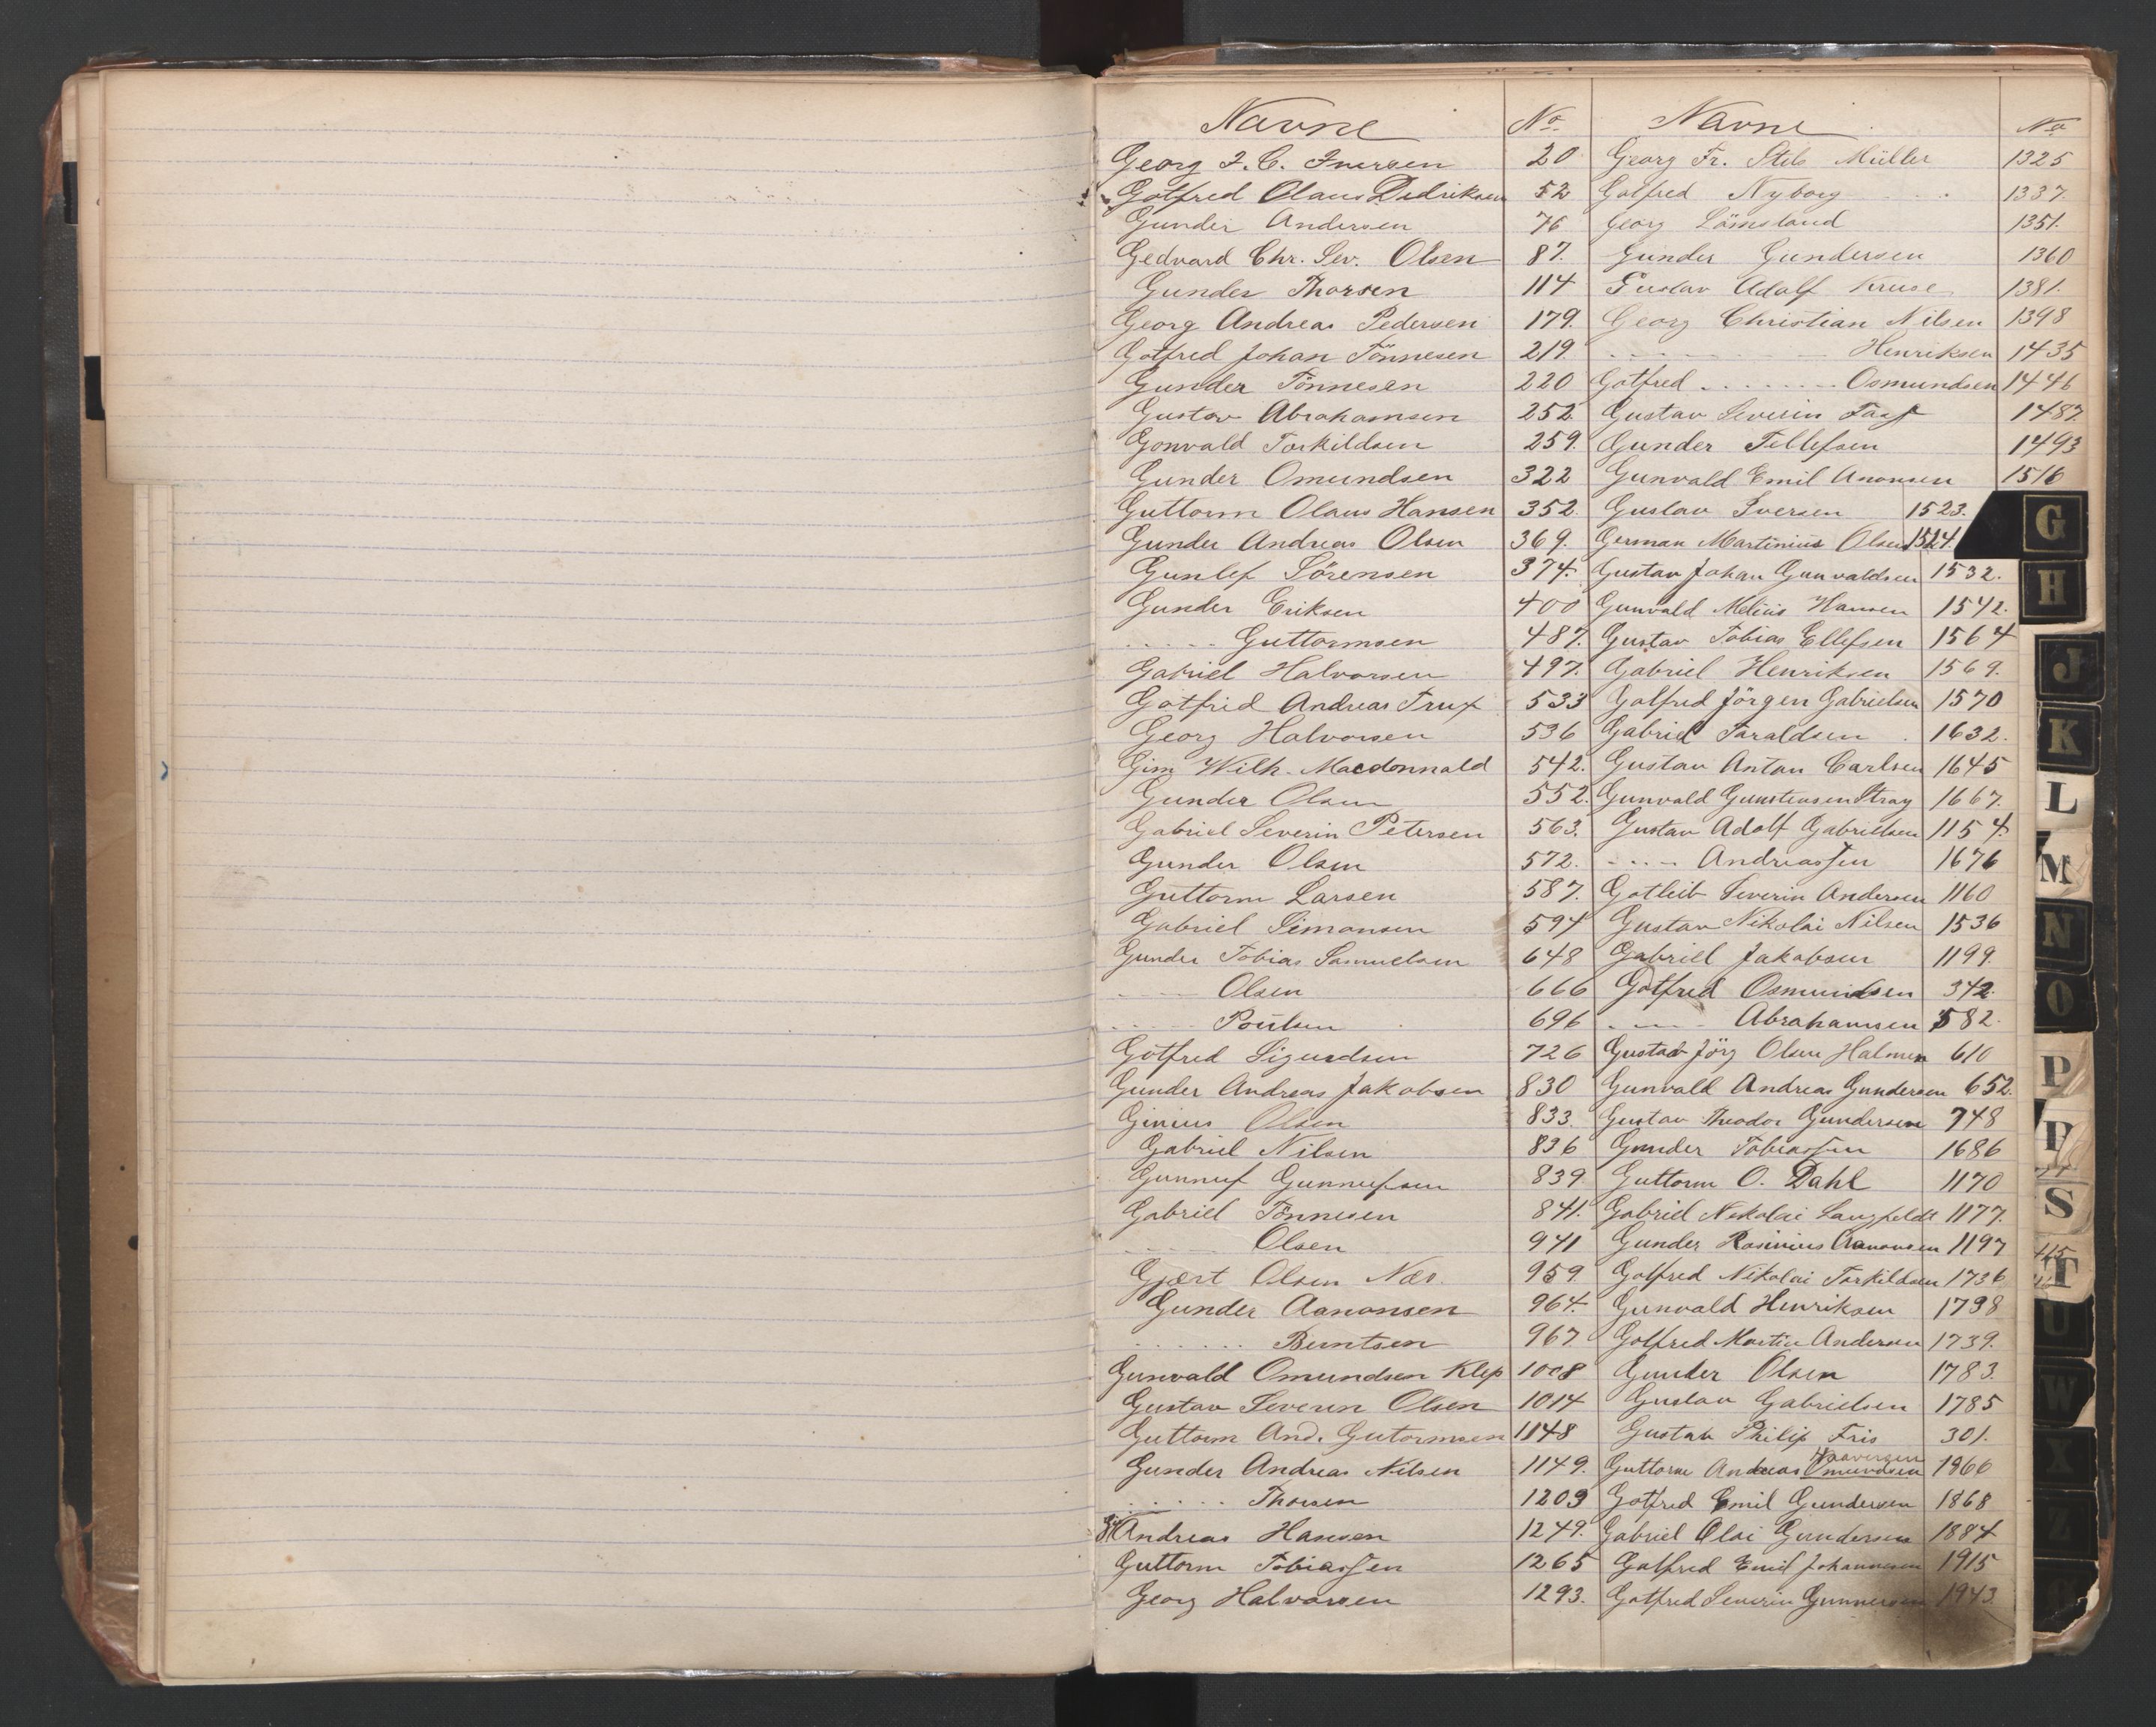 Navne No
Georg F. C. Iversen 20
Gotfred Olaus Didriksen 52
Gunder Andersen 76
Gedvard Chr. Sev. Olsen 87.
Gunder Thorsen 114
Georg Andreas Pedersen 179.
Gotfred Johan Tönnesen 219.
Gunder Tönnesen 220
Gustav Abrahamsen 252
Gonvald Torkildsen 259.
Gunder Omundsen 322
Guttorm Olaus Hansen 352.
Gunder Andreas Olsen 369.
Gunlef Sörensen 374.
Gunder Eriksen 400
..... Guttormsen 487.
Gabriel Halvorsen 497.
Gotfrid Andreas Trux 533
Georg Halvorsen 536
Gim Wilh. Macdonnald 542.
Gunder Olsen 552.
Gabriel Severin Petersen 563.
Gunder Olsen 572.
Guttorm Larsen 587.
Gabriel Simonsen 594
Gunder Tobias Samuelsen 648
---- Olsen 666
..... Poulsen 696
Gotfred Sigurdsen 726
Gunder Andreas Jakobsen 830
Ginius Olsen 833.
Gabriel Nilsen 836
Gunnuf Gunnufsen 839.
Gabriel Tönnesen 841.
..... Olsen 941
Gjert Olsen Næs. 959.
Gunder Aanonsen 964.
...... Berntsen 967
Gunvald Omundsen Klep 1008
Gustav Severin Olsen 1014
Guttorm And. Gutormsen 1148
Gunder Andreas Nilsen 1149.
..... Thorsen 1209
Andreas Hansen 1249.
Guttorm Tobiassen 1265
Georg Halvorsen 1293.
Navne No
Georg Fr. Müller 1325
Gotfred Nyborg 1337.
Georg Lömsland 1351.
Gunder Gundersen 1360
Gustav Adolf Kruse 1381.
Georg Christian Nilsen 1398
..... Henriksen 1435
Gotfred ........ Osmundsen 1446
Gustav Severin 1487.
Gunder Tellefsen 1493
Gunvald Emil Anonsen 1516
Gustav Iversen 1523.
German Martinius Olsen 1524.
Gustav Johan Gunvaldsen 1532.
Gunvald Melius Hansen 1542.
Gustav Tobias Ellefsen 1564
Gabriel Henriksen 1569.
Gotfred Jörgen Gabrielsen 1570
Gabriel Taraldsen 1632.
Gustav Anton Carlsen 1645
Gunvald Gunstensen Stray 1667.
Gustav Adolf Gabrielsen 1154
---- Andreassen 1676
Gotleib Severin Andersen 1160
Gustav Nikolai Nilsen 1536
Gabriel Jakobsen 1199.
Gotfred Osmundsen 342.
---- Abrahamsen 582.
Gustav Jörg Olsen 610
Gunvald Andreas Gundersen 652.
Gustav Theodor Gundersen 748
Gunder Tobiassen 1686
Guttorm O. Dahl 1170
Gabriel Nikolai Langfeldt 1177.
Gunder Rosinius Aanonsen 1197
Gotfred Nikolai Torkildsen 1736
Gunvald Henriksen 1738
Gotfred Martin Andersen 1739.
Gunder Olsen 1783.
Gustav Gabrielsen 1785
Gustav Philip Fris 301.
Guttorm Andreas Omundsen 1866
Gotfred Emil Gundersen 1868
Gabriel Olai Gundersen 1884
Gotfred Emil Johannesen 1915
Gotfred Severin Gunnersen 1943.
G
H
J
K
L
M
N
O
P
S
T
U
W
X
Z